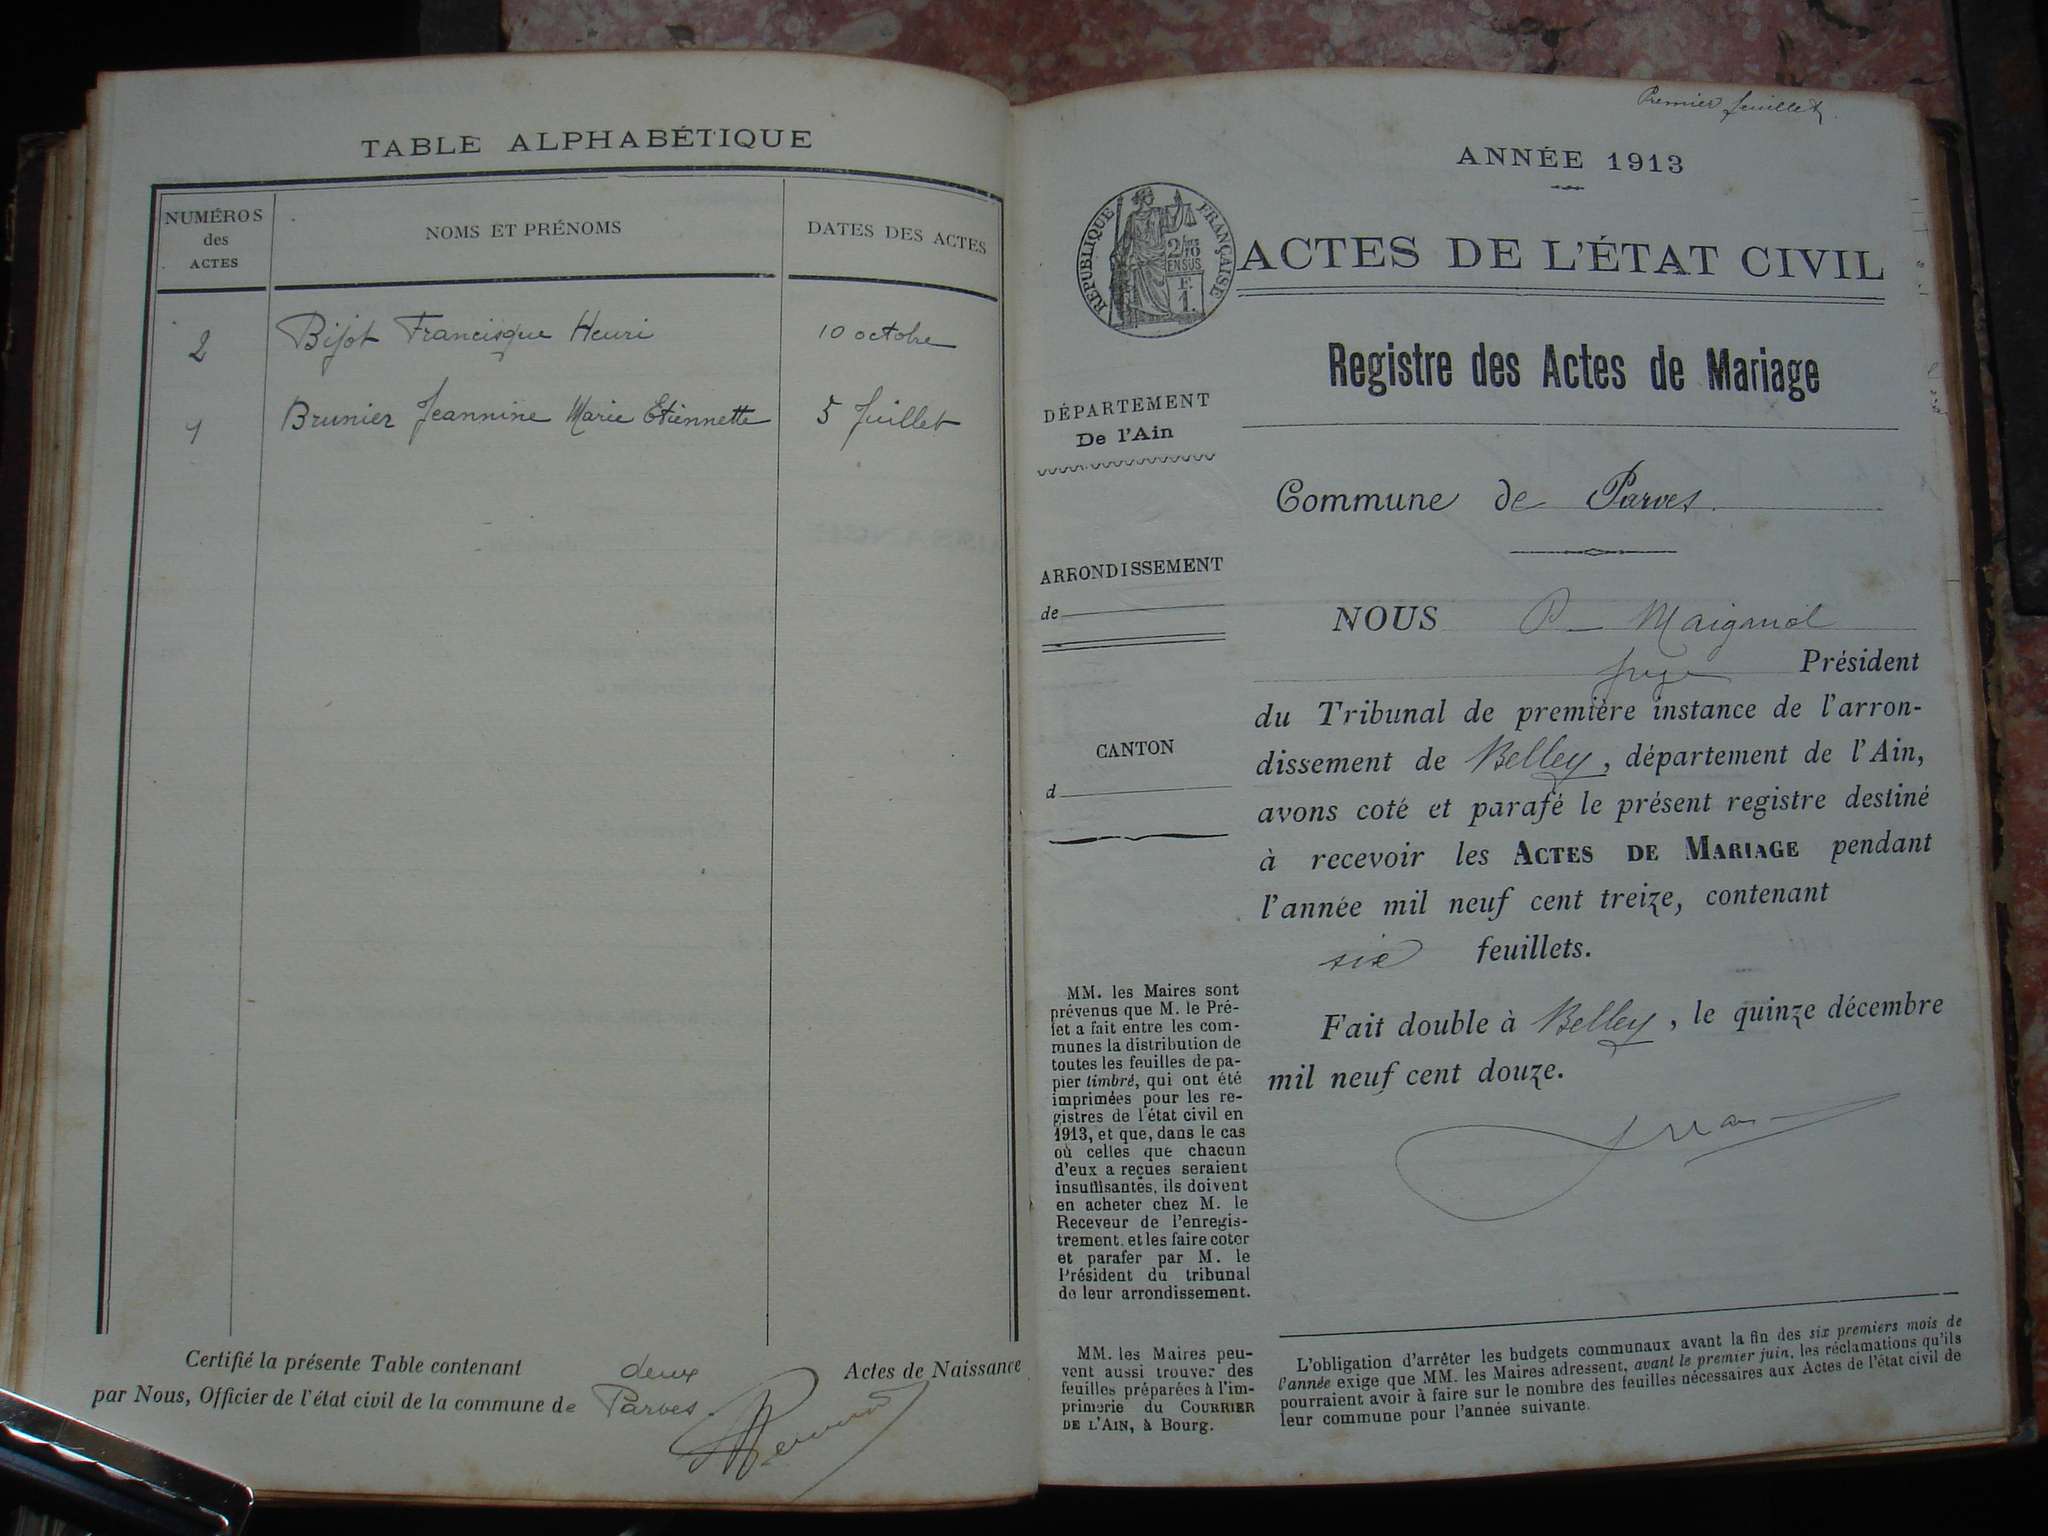 TABLE ALPHABÉTIQUE
NUMÉROS
des
ACTES
NOMS ET PRÉNOMS
DATES DES ACTES
2 Bijot Francisque Henri 10 octobre
1 Brunier Jeannine Marie Etiennette 5 Juillet
Certifié la présente Table contenant deux Actes de Naissance
par Nous, Officier de l'état civil de la commune de Parves
Premier feuillet.
ANNÉE 1913
RÉPUBLIQUE FRANÇAISE
2/10
EN SUS
F.
1.
ACTES DE L'ÉTAT CIVIL
Registre des Actes de Mariage
DÉPARTEMENT
De l'Ain
Commune de Parves.
ARRONDISSEMENT
de
CANTON
d
NOUS P. Maigand
juge Président
du Tribunal de première instance de l'arron-
dissement de Belley, département de l'Ain,
avons coté et parafé le présent registre destiné
à recevoir les ACTES DE MARIAGE pendant
l'année mil neuf cent treize, contenant
six feuillets.
Fait double à Belley, le quinze décembre
mil neuf cent douze.
MM. les Maires sont
prévenus que M. le Pré-
fet a fait entre les com-
munes la distribution de
toutes les feuilles de pa-
pier timbré, qui ont été
imprimées pour les re-
gistres de l'état civil en
1913, et que, dans le cas
où celles que chacun
d'eux a reçues seraient
insuffisantes, ils doivent
en acheter chez M. le
Receveur de l'enregis-
trement, et les faire coter
et parafer par M. le
Président du tribunal
de leur arrondissement.
MM. les Maires peu-
vent aussi trouver des
feuilles préparées à l'im-
primerie du COURRIER
DE L'AIN, à Bourg.
L'obligation d'arrêter les budgets communaux avant la fin des six premiers mois de
l'année exige que MM. les Maires adressent, avant le premier juin, les réclamations qu'ils
pourraient avoir à faire sur le nombre des feuilles nécessaires aux Actes de l'état civil de
leur commune pour l'année suivante.